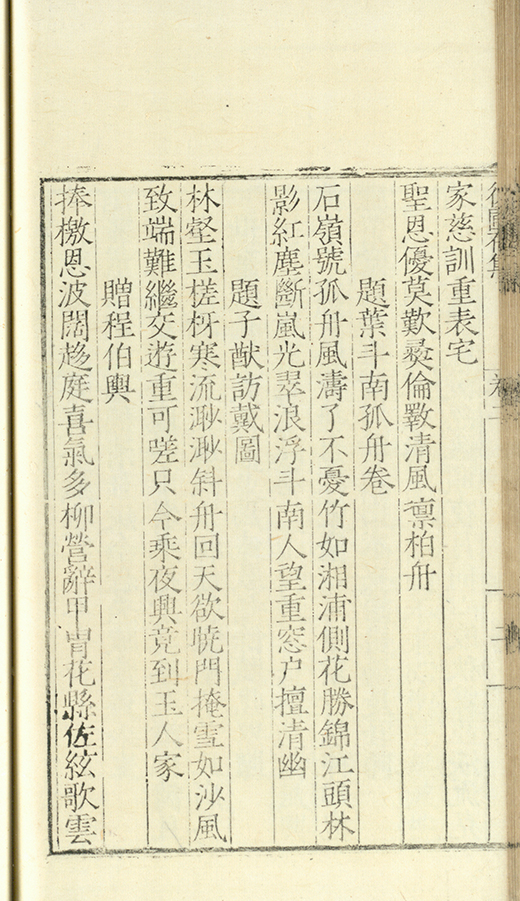 家慈訓重表宅
聖恩優莫歎彝倫斁清風凛柏舟
題葉斗南孤舟卷
石嶺號孤舟風濤了不憂竹如湘浦側花勝錦江頭林
影紅塵斷嵐光翠浪浮斗南人望重窓户擅清幽
題子猷訪戴圖
林壑玉槎枒寒流渺渺斜舟回天欲曉門掩雪如沙風
致端難繼交遊重可嗟只今乘夜興竟到玉人家
贈程伯輿
捧檄恩波闊趍庭喜氣多柳營辭甲冑花縣佐絃歌雲